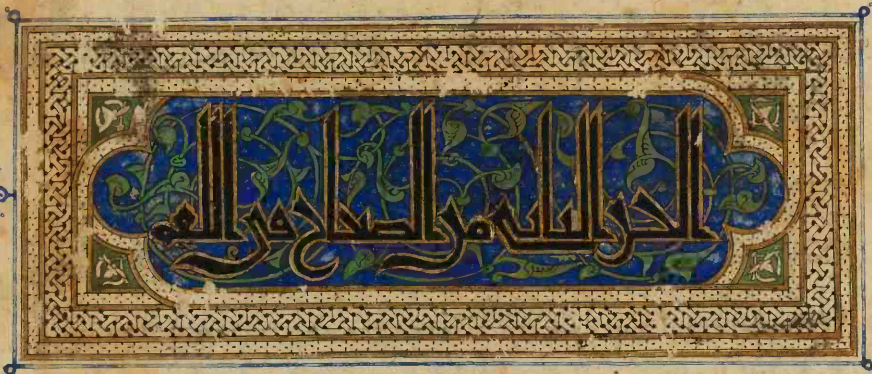 الجز الثانى من الصحاح فى اللغة